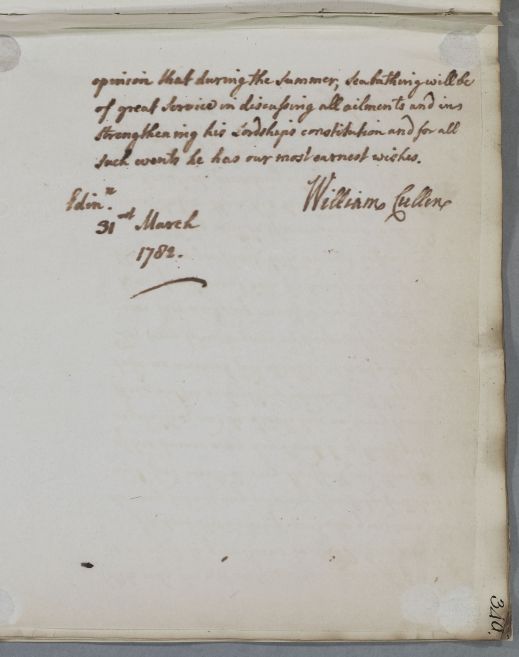 opinion that during the Summer, Seabathing will be
of great Service in discussing all ailments and in
strengthening his Lordships constitution and for all
such events he has our most earnest wishes.
William Cullen
Edinr.
31st March
1782.
340.